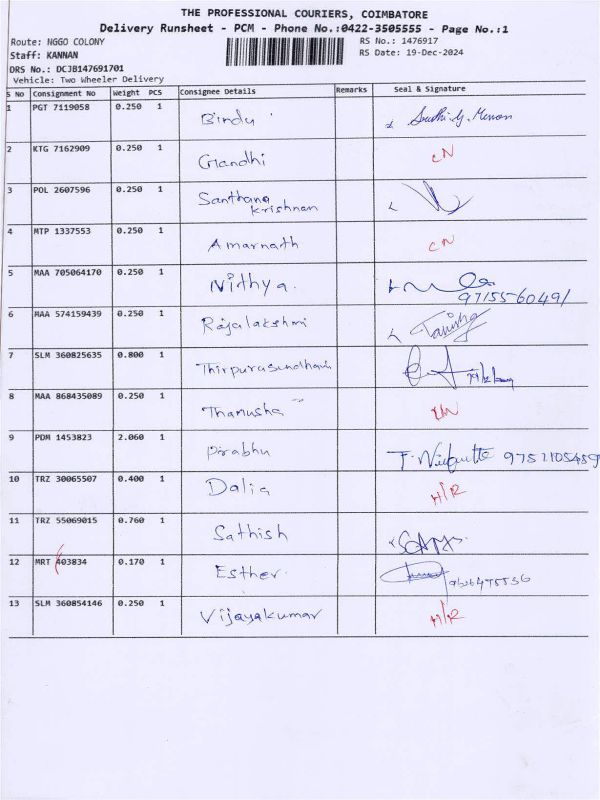 THE PROFESSIONAL COURIERS, COIMBATORE
Delivery Runsheet - PCM - Phone No.:0422-3505555 - Page No.:1
Route: NGGO COLONY RS No.: 1476917
Staff: KANNAN RS Date: 19-Dec-2024
DRS No.: DCJB147691701
Vehicle: Two Wheeler Delivery
S No Consignment No Weight PCS Consignee Details Remarks Seal & Signature
1 PGT 7119058 0.250 1 Bindu
2 KTG 7162909 0.250 1 Gandhi CN
3 POL 2607596 0.250 1 Santhana
krishnan
4 MTP 1337553 0.250 1 Amarnath CN
5 MAA 705064170 0.250 1 Nithya.
9715560491
6 MAA 574159439 0.250 1 Rajalakshmi
7 SLM 360825635 0.800 1
8 MAA 868435089 0.250 1 Thanusha
9 PDM 1453823 2.060 1 Prabhu
10 TRZ 30065507 0.400 1 Dalia H/R
11 TRZ 55069015 0.760 1 Sathish
12 MRT 403834 0.170 1 Esther
13 SLM 360854146 0.250 1 Vijayakumar H/R